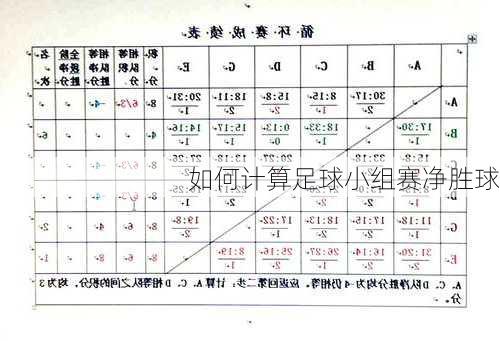 循·环·赛·成·绩·表
A B C D G E 积分 相等队积分 相等队净胜分 全阶段净胜分 名次
A 30:17/2 8:15/1 15:8/2 18:11/2 20:31/1 8 6/3 -4
B 17:30/1 18:33/1 0:13/0 15:17/1 14:16/1 4 6
C 15:8 33:18 8
D 8
如何计算足球小组赛净胜球
G 11:18/1 17:15/2 17:22/1 19:8/2 8 6 2
E 31:20/2 16:14/2 26:27/1 25:16/2 8:19/1 8 6 8 1
A、C、D 相等队净胜分均为-4 仍相等。应返回第二步：计算 A、C、D 相等队之间的积分，均为 3
分。